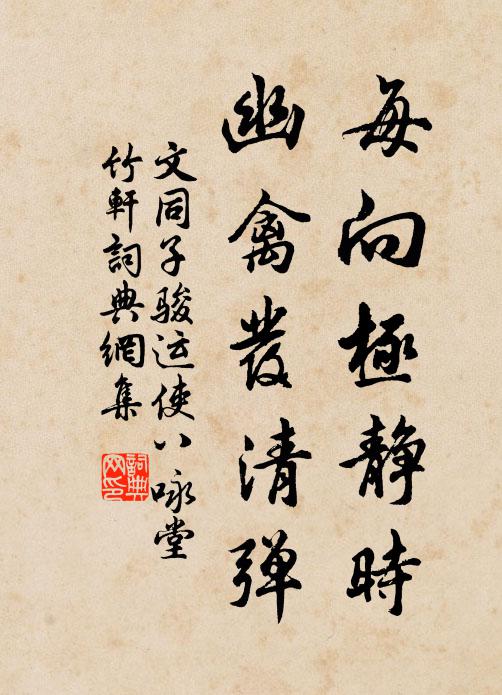 每向極静時
幽禽發清弹
文同子駿运使八咏堂
竹軒詞典網集
詞典
网印